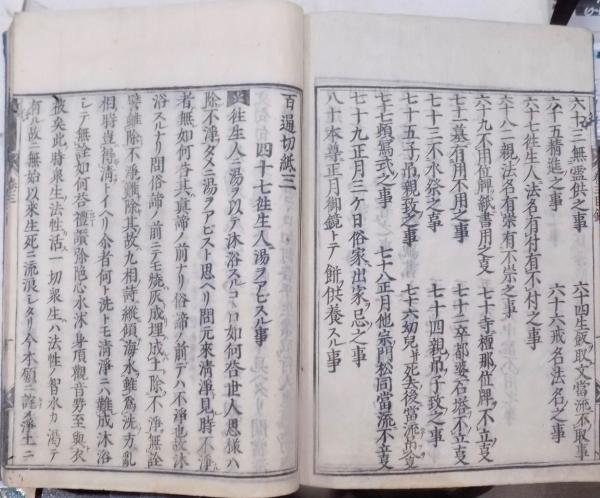 六十三無霊供之事　六十四生飯取文當流不取事
六十五精進之事　六十六戒名法名之事
六十七往生人法名有村有不村之事
六十八二親法名有崇有不崇之事
六十九不用位牌紙書用之㕝　七十寺檀那位牌不立㕝
七十一墓有用不用之事　七十二卒都婆石塔不立㕝
七十三不水祭之事　七十四親弔子㳒之事
七十五子弔親㳒之事　七十六幼兒死去後當流
七十七頭寫　之事　七十八正月他宗門松同當流不立㕝
七十九正月三ケ日俗家出家忌之事
八十本尊正月御鏡トテ餅供養スル事
百通切紙三
四十七往生人湯ヲアビスル事
往生人ニ湯ヲ以テ沐浴スルコト如何答世人思様ハ
除不淨タメニ湯ヲアビスト思ヘリ問元來清淨見時不淨
者無如何答其真諦ノ前ナリ俗諦ノ前デハ不淨也故沐
浴スルナリ問俗諦ノ前ニテモ焼灰成埋成土除不淨無詮
譬離除不淨難除其故九相詩縱傾海水鯉為洗方亂
相時豈得清トイヘリ今者何ト洗トモ清淨ニハ難成沐浴
シテ無詮如何答禮讃除心水沐身頂觀音勢至與衣
被矣此時衆生法性活一切衆生ハ法性ノ智水カ渇テ
有ル故ニ無始以來生死ニ流浪シタリ今本願ニ詫淨土ニ